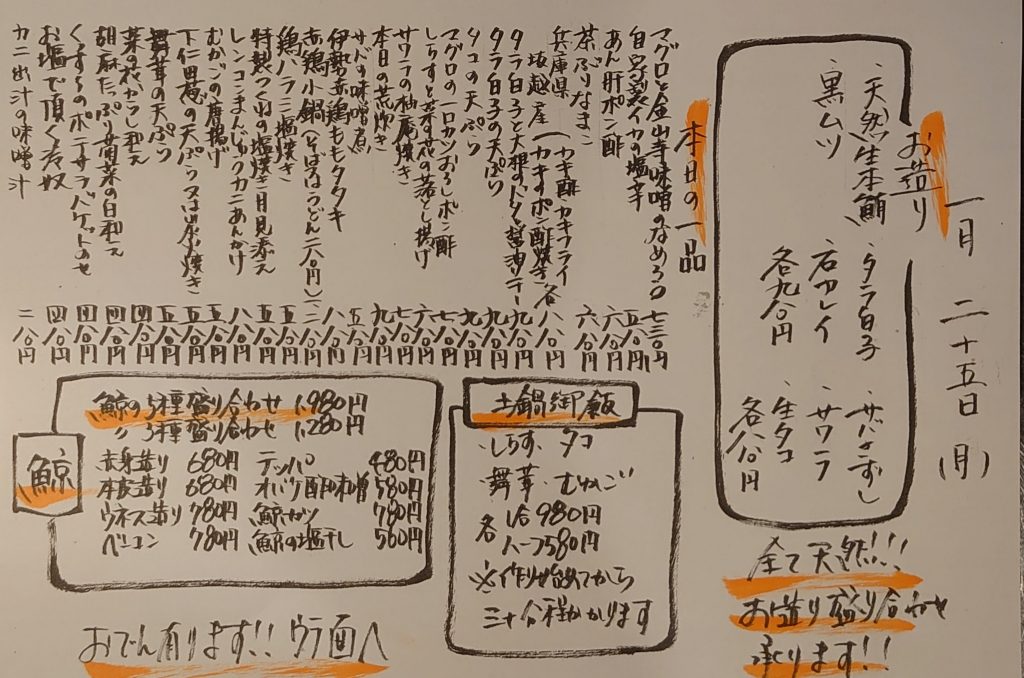 一月 二十五日 (月)
お造り
・天然生本鮪
・黒ムツ
・タラ白子
・石カレイ
各九八〇円
・サバきずし
・サワラ
・生タコ
各八八〇円
全て天然!!!
お造り盛り合わせ
承ります!!
本日の一品
マグロと金山寺味噌のなめろう 七三〇円
自家製イカの塩辛 五八〇円
あん肝ポン酢 六八〇円
茶ぶりなまこ 六八〇円
兵庫県
坂越産 (カキ酢 カキフライ
カキのポン酢焼き 各八八〇円
タラ白子と大根のバター醤油ソテー 九八〇円
タラ白子の天ぷら 九八〇円
タコの天ぷら 九八〇円
マグロの一口カツおろしポン酢 七八〇円
しらすと菜の花の落とし揚げ 六八〇円
サワラの柚庵焼き 七八〇円
本日の荒炊き 九八〇円
サバの味噌煮 五八〇円
伊勢赤鶏ももタタキ 八八〇円
赤鶏小鍋(そば又はうどん二八〇円)
鶏ハラミ塩焼き 五八〇円
特製つくねの塩焼き 月見添え 五八〇円
レンコンまんじゅうカニあんかけ 八八〇円
むかごの唐揚げ 五八〇円
下仁田葱の天ぷら又は炭火焼き 五八〇円
舞茸の天ぷら 五八〇円
菜の花からし和え 四八〇円
胡麻たっぷり菊菜の白和え 四八〇円
くずし豆のポテサラバケットのせ 四八〇円
お塩で頂く冷奴 四八〇円
カニ出汁の味噌汁 二八〇円
土鍋御飯
・しらす・タコ
・舞茸・むかご
各 1合980円
ハーフ580円
※作り始めてから
三十分程かかります
鯨
鯨の5種盛り合わせ 1,980円
〃 3種盛り合わせ 1,280円
赤身造り 680円 テッパ 480円
本皮造り 680円 オバケ酢味噌 580円
ウネス造り 780円 鯨カツ 780円
ベーコン 780円 鯨の塩干し 560円
おでん有ります!! ウラ面へ